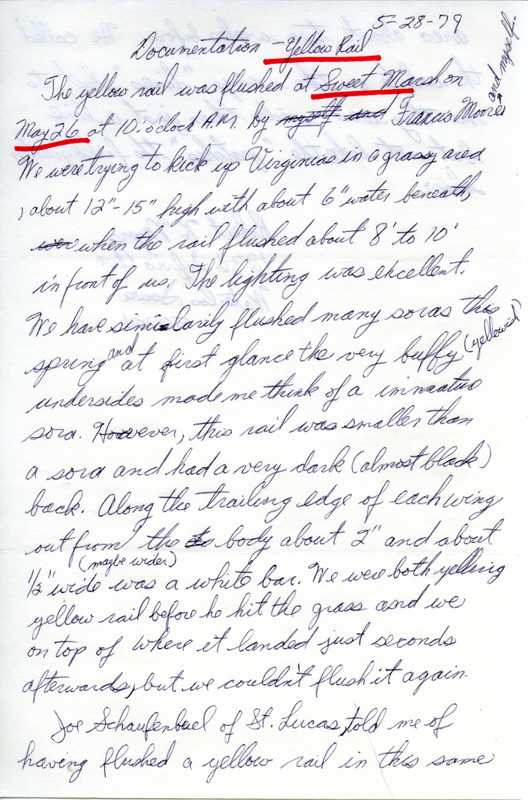 5-28-79
Documentation - Yellow Rail
The yellow rail was flushed at Sweet Marsh on
May 26 at 10:o'clock A.M. by myself and Francis Moore and myself.
We were trying to kick up Virginias in a grassy area
, about 12"-15" high with about 6" water beneath,
when the rail flushed about 8' to 10'
in front of us. The lighting was excellent.
We have similarily flushed many soras this
spring and at first glance the very buffy (yellowish)
undersides made me think of a
sora. However, this rail was smaller than
a sora and had a very dark (almost black)
back. Along the trailing edge of each wing
out from the body about 2" and about
1/2" (maybe wider) wide was a white bar. We were both yelling
yellow rail before he hit the grass and we
on top of where it landed just seconds
afterwards, but we couldn't flush it again.
Joe Schaufenbuel of St. Lucas, told me of
having flushed a yellow rail in this same